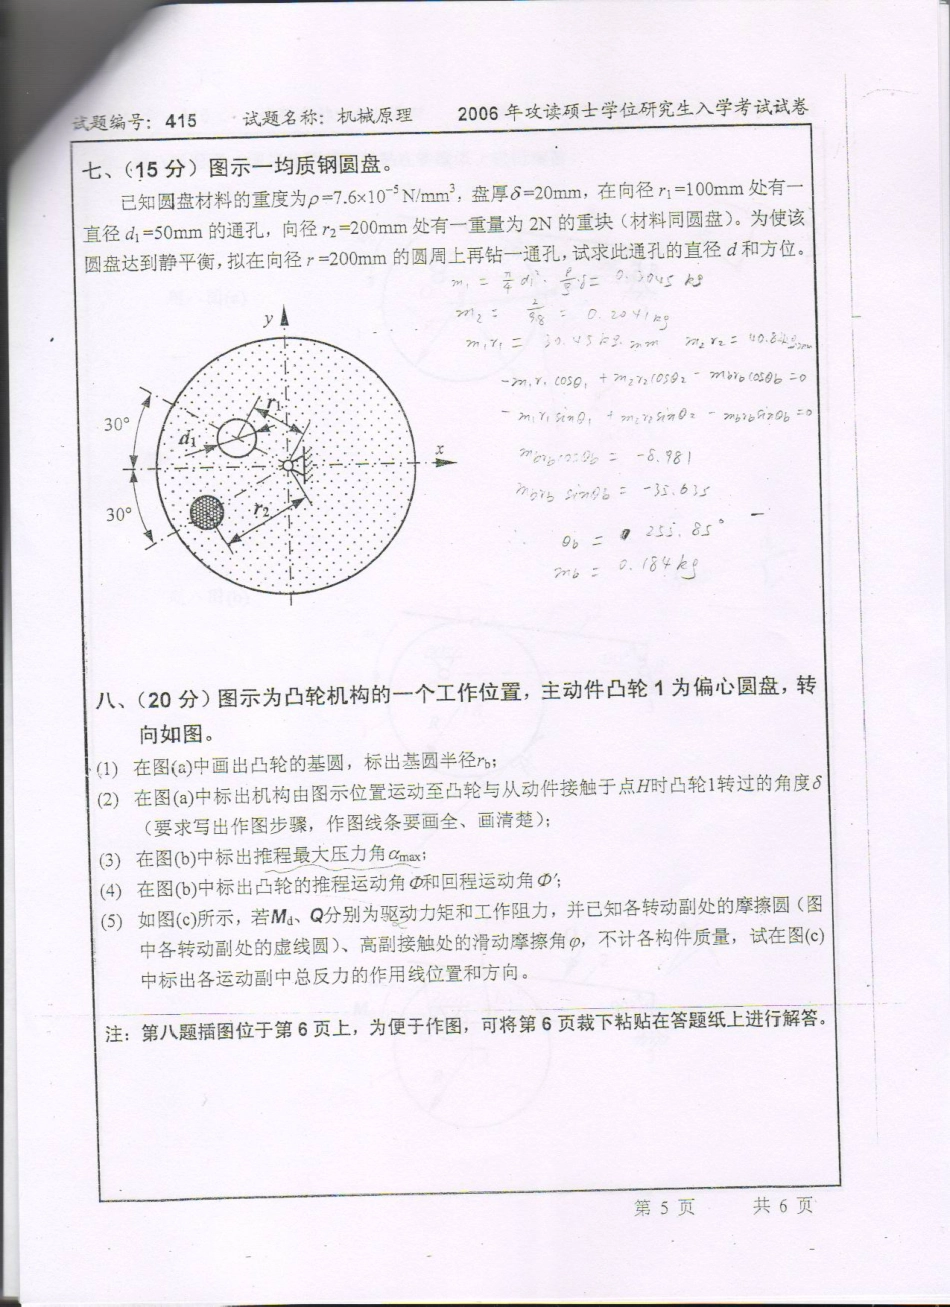 试题编号：415 试题名称：机械原理 2006 年攻读硕士学位研究生入学考试试卷
七、（15 分）图示一均质钢圆盘。
已知圆盘材料的重度为ρ=7.6×10⁻⁵N/mm³，盘厚δ=20mm，在向径 r₁=100mm 处有一
直径 d₁=50mm 的通孔，向径 r₂=200mm 处有一重量为 2N 的重块（材料同圆盘）。为使该
圆盘达到静平衡，拟在向径 r=200mm 的圆周上再钻一通孔，试求此通孔的直径 d 和方位。
m₂ = 2/9.8 = 0.2041kg
-m₁r₁cosθ₁ + m₂r₂cosθ₂ - mbrbcosθb =0
-m₁r₁sinθ₁ + m₂r₂sinθ₂ - mbrbsinθb =0
mbrbcosθb = -8.981
mbrb sinθb = -35.635
θb = 255.85°
mb = 0.184kg
y
x
30°
30°
d₁
r₁
r₂
八、（20 分）图示为凸轮机构的一个工作位置，主动件凸轮 1 为偏心圆盘，转
向如图。
(1) 在图(a)中画出凸轮的基圆，标出基圆半径rb;
(2) 在图(a)中标出机构由图示位置运动至凸轮与从动件接触于点H时凸轮1转过的角度δ
（要求写出作图步骤，作图线条要画全、画清楚）;
(3) 在图(b)中标出推程最大压力角αmax;
(4) 在图(b)中标出凸轮的推程运动角Φ和回程运动角Φ′;
(5) 如图(c)所示，若Md、Q分别为驱动力矩和工作阻力，并已知各转动副处的摩擦圆（图
中各转动副处的虚线圆）、高副接触处的滑动摩擦角φ，不计各构件质量，试在图(c)
中标出各运动副中总反力的作用线位置和方向。
注：第八题插图位于第 6 页上，为便于作图，可将第 6 页裁下粘贴在答题纸上进行解答。
第 5 页 共 6 页